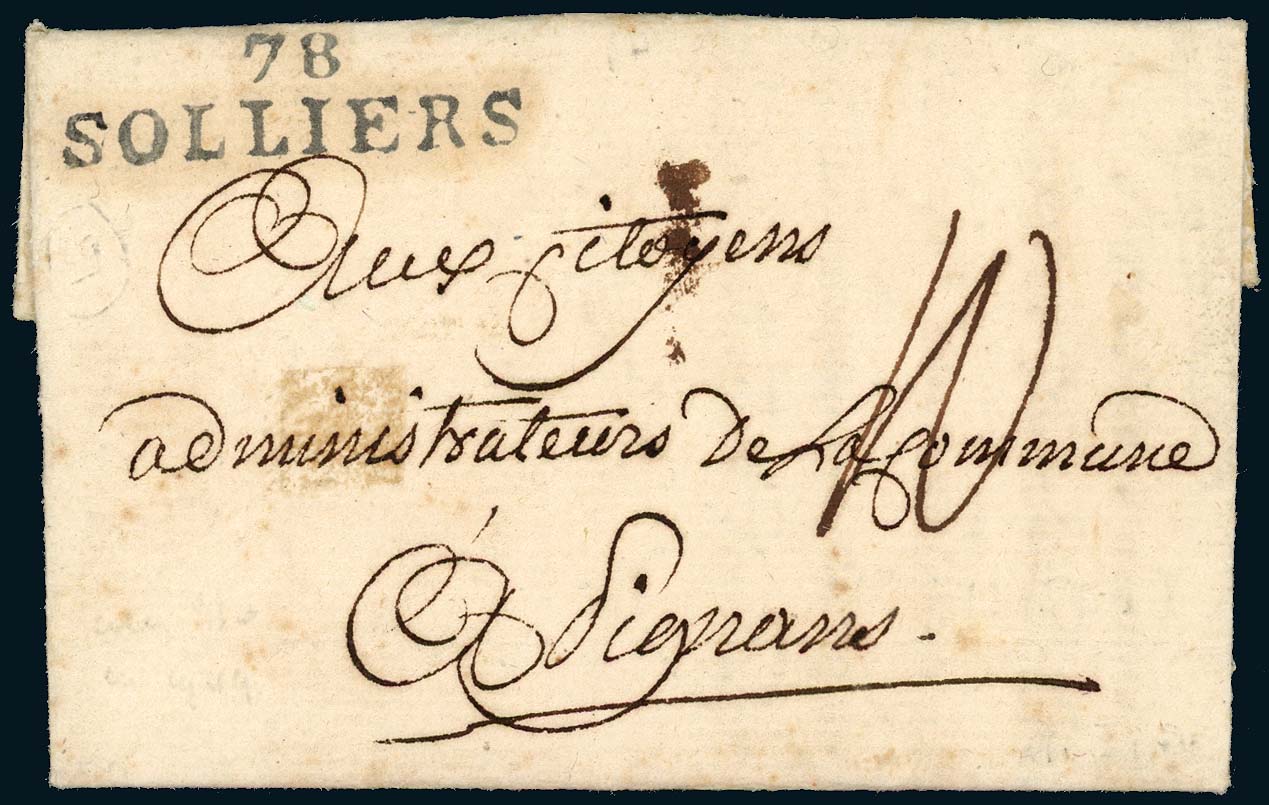 78
SOLLIERS
Aux citoyens
administrateurs de la commune
À Pignans